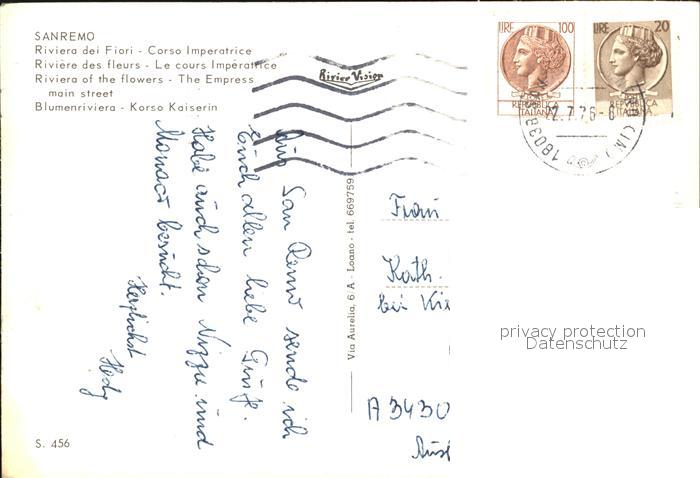 SANREMO
Riviera dei Fiori - Corso Imperatrice
Rivière des fleurs - Le cours Impératrice
Riviera of the flowers - The Empress
main street
Blumenriviera - Korso Kaiserin
River Vision
LIRE 100
REPUBBLICA
ITALIANA
LIRE 20
REPUBBLICA
ITALIANA
22.7.76-6
18038
(IM)
Aus San Remo sende ich
Euch allen liebe Grüße.
Habe auch schon Nizza und
Monaco besucht.
Herzlichst
Hedy
Via Aurelia, 6/A - Loano - tel. 669759
Frau
Kath.
bei
A 3430
privacy protection
Datenschutz
S. 456